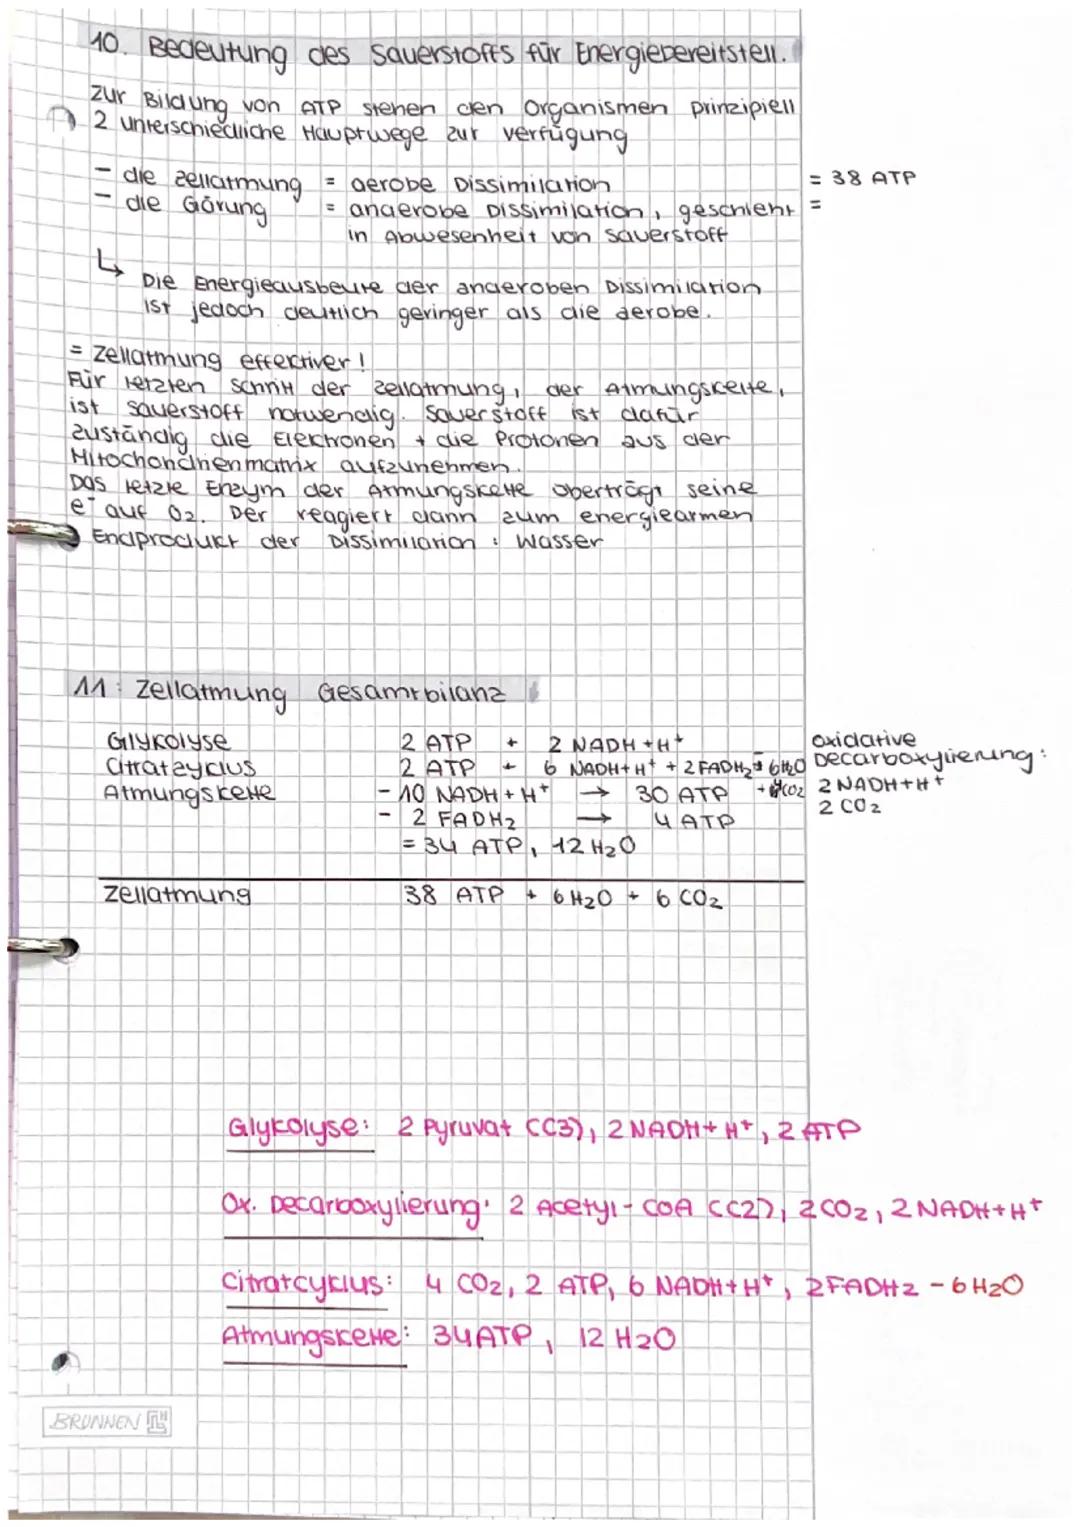 10. Bedeutung des Sauerstoffs für Energiebereitstell.
Zur Bildung von ATP stehen den Organismen prinzipiell
2 unterschiedliche Hauptwege zur verfügung
- die Zellatmung = aerobe Dissimilation = 38 ATP
- die Gärung = anaerobe Dissimilation, geschieht =
in Abwesenheit von Sauerstoff
↳ Die Energieausbeute der anaeroben Dissimilation
ist jedoch deutlich geringer als die aerobe.
= Zellatmung effektiver!
Für letzten Schritt der Zellatmung, der Atmungskette,
ist Sauerstoff notwendig. Sauerstoff ist dafür
zuständig die Elektronen + die Protonen aus der
Mitochondrienmatrix aufzunehmen.
Das letzte Enzym der Atmungskette überträgt seine
e⁻ auf O₂. Der reagiert dann zum energiearmen
Endprodukt der Dissimilation: Wasser
11: Zellatmung Gesamtbilanz
Glykolyse 2 ATP + 2 NADH+H⁺
Citratzyklus 2 ATP + 6 NADH+H⁺ + 2 FADH₂ - 6H₂O
+ 4CO₂
Atmungskette - 10 NADH+H⁺ → 30 ATP
- 2 FADH₂ → 4 ATP
= 34 ATP, 12 H₂O
oxidative
Decarboxylierung:
2 NADH+H⁺
2 CO₂
Zellatmung 38 ATP + 6 H₂O + 6 CO₂
Glykolyse: 2 Pyruvat (C3), 2 NADH+H⁺, 2 ATP
Ox. Decarboxylierung: 2 Acetyl-CoA (C2), 2CO₂, 2 NADH+H⁺
Citratcyklus: 4 CO₂, 2 ATP, 6 NADH+H⁺, 2FADH2 - 6 H₂O
Atmungskette: 34ATP, 12 H₂O
BRUNNEN